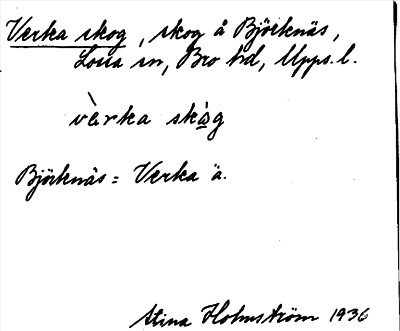 Verka skog, skog å Björknäs,
Lossa sn, Bro hd, Upps. l.
vàrka skå̀g
Björknäs = Verka ä.
Stina Holmström 1936